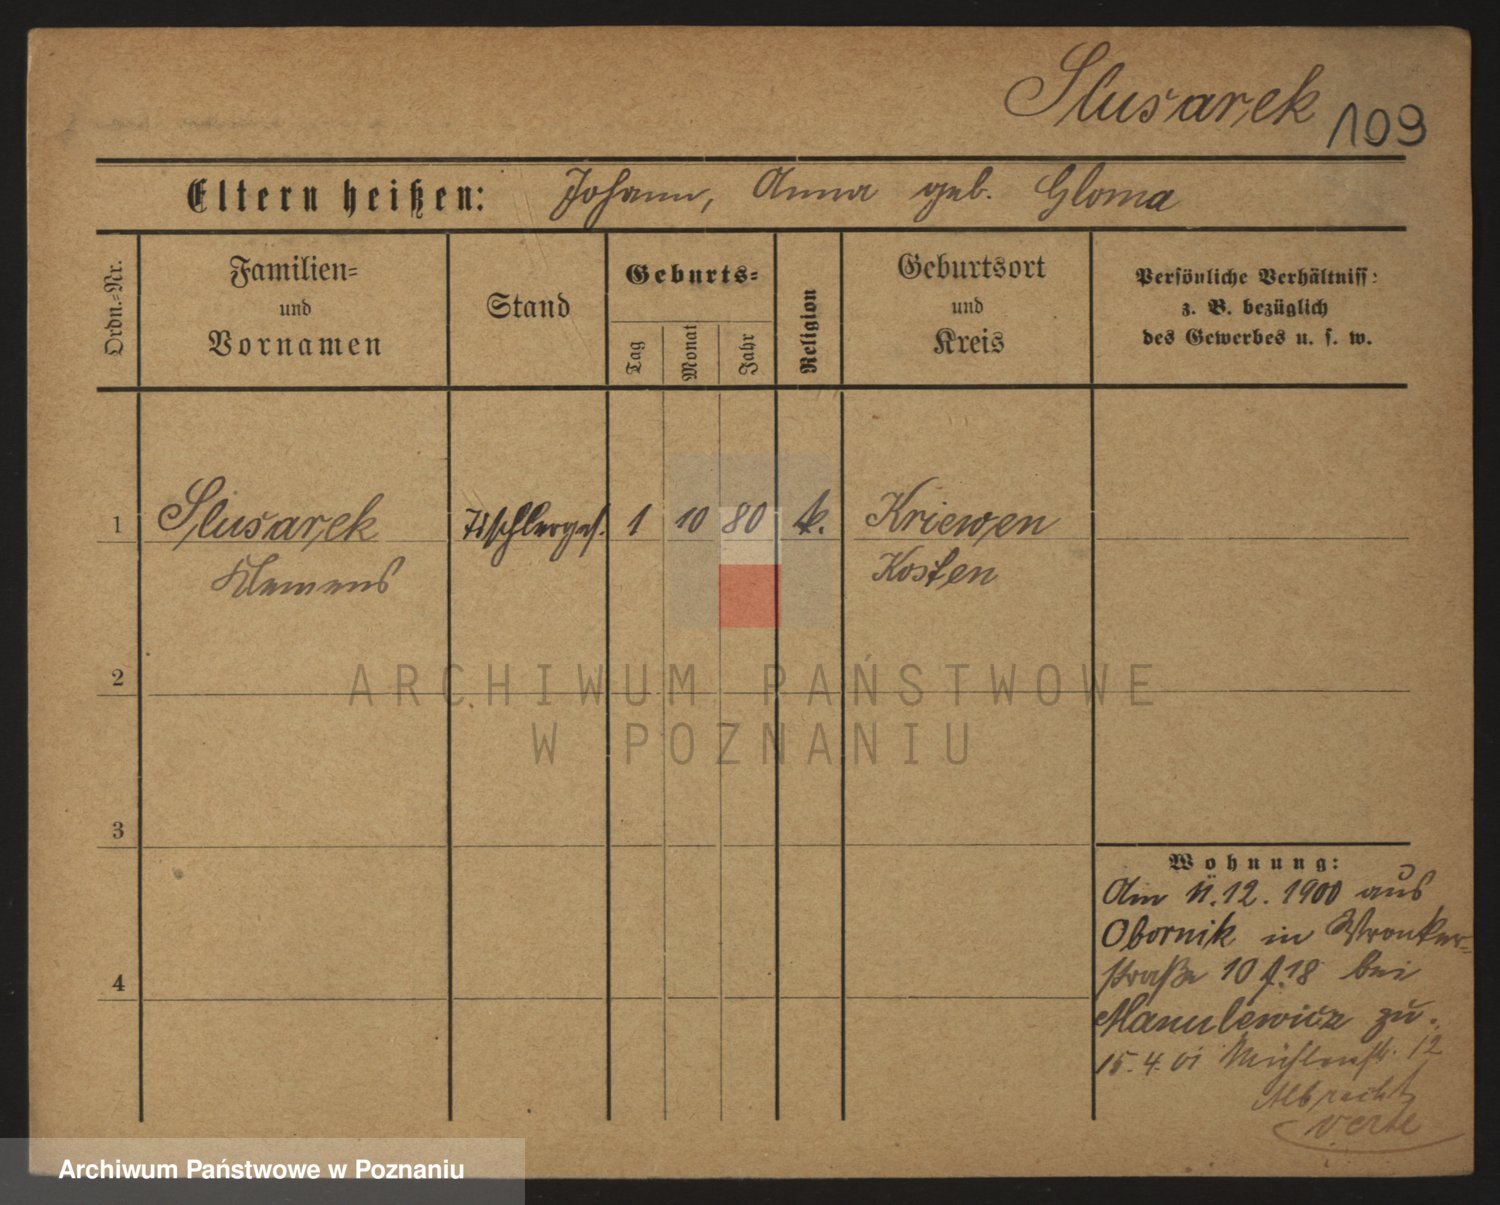 Slusarek 109
Eltern heißen: Johann, Anna geb. Gloma
Ordn.-Nr.
Familien-
und
Vornamen
Stand
Geburts-
Tag
Monat
Jahr
Religion
Geburtsort
und
Kreis
Persönliche Verhältniss:
z. B. bezüglich
des Gewerbes u. s. w.
1 Slusarek Tischlerges. 1 10 80 k. Kriewen
Klemens Kosten
2
ARCHIWUM PAŃSTWOWE
W POZNANIU
3
Wohnung:
Am 11.12.1900 aus
Obornik in Wronker-
straße 10 f. 18 bei
Manulewicz zu.
15.4.01 Mühlenstr. 12
Albrecht
verte
4
Archiwum Państwowe w Poznaniu